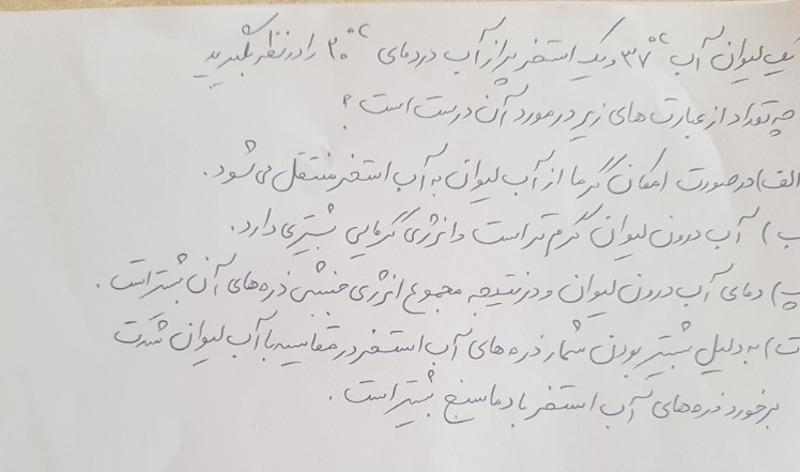 یک لیوان آب ۳۷°C و یک استخر پر از آب در دمای ۲۰°C را در نظر بگیرید
چه تعداد از عبارت های زیر در مورد آن درست است ؟
الف) در صورت امکان گرما از آب لیوان به آب استخر منتقل می شود .
ب) آب درون لیوان گرم تر است و انرژی گرمایی بیشتری دارد .
پ) دمای آب درون لیوان و در نتیجه مجموع انرژی جنبشی ذره های آن بیشتر است .
ت) به دلیل بیشتر بودن شمار ذره های آب استخر در مقایسه با آب لیوان شدت
برخورد ذره های آب استخر با دماسنج بیشتر است .